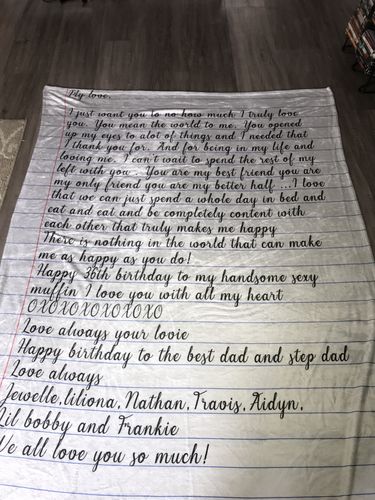 My love,
I just want you to no how much I truly love
you. You mean the world to me. You opened
up my eyes to alot of things and I needed that
I thank you for. And for being in my life and
loving me. I can't wait to spend the rest of my
left with you . You are my best friend you are
my only friend you are my better half ...I love
that we can just spend a whole day in bed and
eat and eat and be completely content with
each other that truly makes me happy
There is nothing in the world that can make
me as happy as you do!
Happy 36th birthday to my handsome sexy
muffin I love you with all my heart
OXOXOXOXOXOXO
Love always your lovie
Happy birthday to the best dad and step dad
Love always
Jewelle,liliona, Nathan, Travis, Aidyn,
Lil bobby and Frankie
We all love you so much!